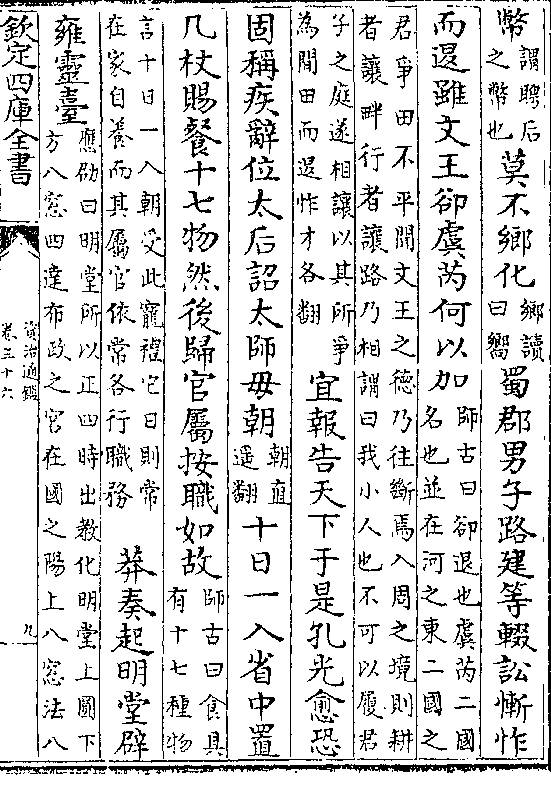 幣謂聘后之幣也莫不鄉化鄉讀曰嚮蜀郡男子路建等輟訟慚怍
而退雖文王卻虞芮何以加師古曰卻退也虞芮二國名也並在河之東二國之
君爭田不平聞文王之德乃往斷焉入周之境則耕者讓畔行者讓路乃相謂曰我小人也不可以履君
子之庭遂相讓以其所爭為閒田而退怍才各翻宜報告天下于是孔光愈恐
固稱疾辭位太后詔太師毋朝朝直遥翻十日一入省中置
几杖賜餐十七物然後歸官屬按職如故師古曰食具有十七種物
言十日一入朝受此寵禮它日則常在家自養而其屬官依常各行職務莽奏起明堂辟
雍靈臺應劭曰明堂所以正四時出教化明堂上圜下方八窓四達布政之宫在國之陽上八窓法八
欽定四庫全書
資治通鑑
卷三十六
九